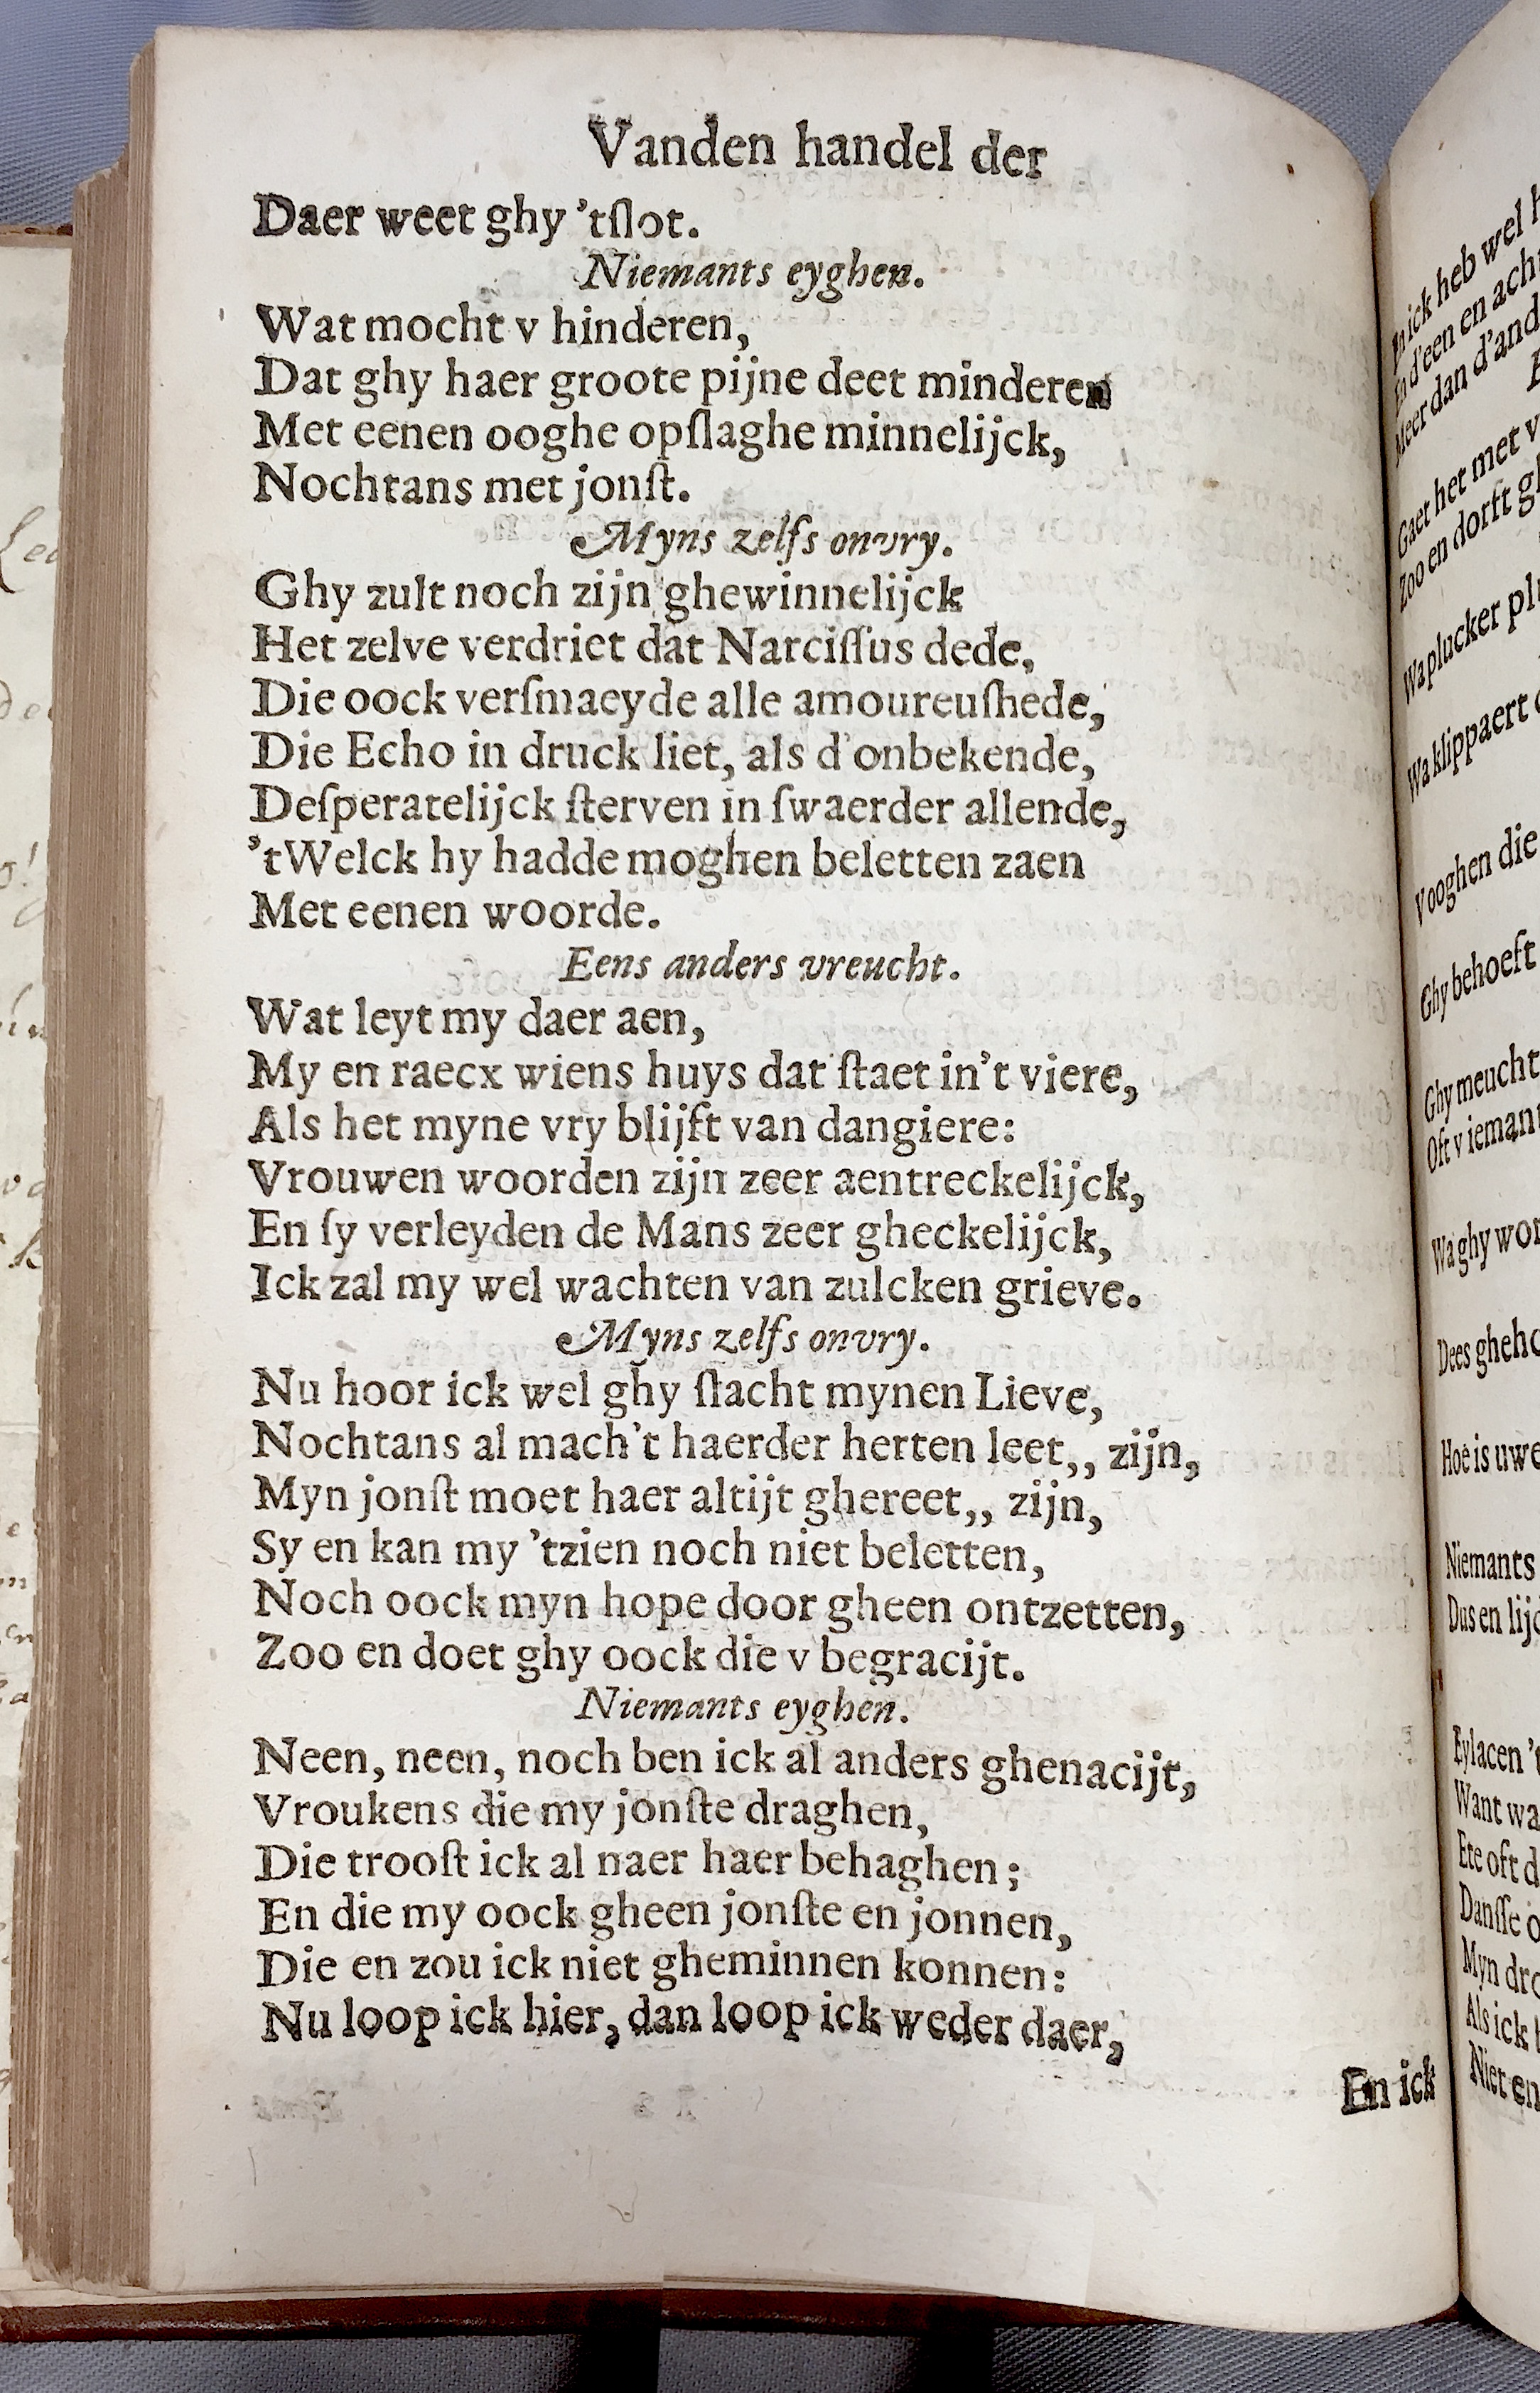 Vanden handel der
Daer weet ghy 'tſlot.
Niemants eyghen.
Wat mocht v hinderen,
Dat ghy haer groote pijne deet minderen
Met eenen ooghe opſlaghe minnelijck,
Nochtans met jonſt.
Myns zelfs onvry.
Ghy zult noch zijn ghewinnelijck
Het zelve verdriet dat Narciſſus dede,
Die oock verſmaeyde alle amoureuſhede,
Die Echo in druck liet, als d'onbekende,
Deſperatelijck ſterven in ſwaerder allende,
'tWelck hy hadde moghen beletten zaen
Met eenen woorde.
Eens anders vreucht.
Wat leyt my daer aen,
My en raecx wiens huys dat ſtaet in't viere,
Als het myne vry blijft van dangiere:
Vrouwen woorden zijn zeer aentreckelijck,
En ſy verleyden de Mans zeer gheckelijck,
Ick zal my wel wachten van zulcken grieve.
Myns zelfs onvry.
Nu hoor ick wel ghy ſlacht mynen Lieve,
Nochtans al mach't haerder herten leet,, zijn,
Myn jonſt moet haer altijt ghereet,, zijn,
Sy en kan my 'tzien noch niet beletten,
Noch oock myn hope door gheen ontzetten,
Zoo en doet ghy oock die v begracijt.
Niemants eyghen.
Neen, neen, noch ben ick al anders ghenacijt,
Vroukens die my jonſte draghen,
Die trooſt ick al naer haer behaghen;
En die my oock gheen jonſte en jonnen,
Die en zou ick niet gheminnen konnen:
Nu loop ick hier, dan loop ick weder daer,
En ick
ick heb wel
d'een en
Meer dan
Gaet het met
Zoo en dorft
Wa plucker
Wa klippaert
Vooghen die
Ghy behoeft
Ghy meucht
Oft v
Wa ghy
Dees
Hoe is
Niemants
Dus en
Eylacen
Want
Ete oft
Danſſe
Myn
Als ick
Niet